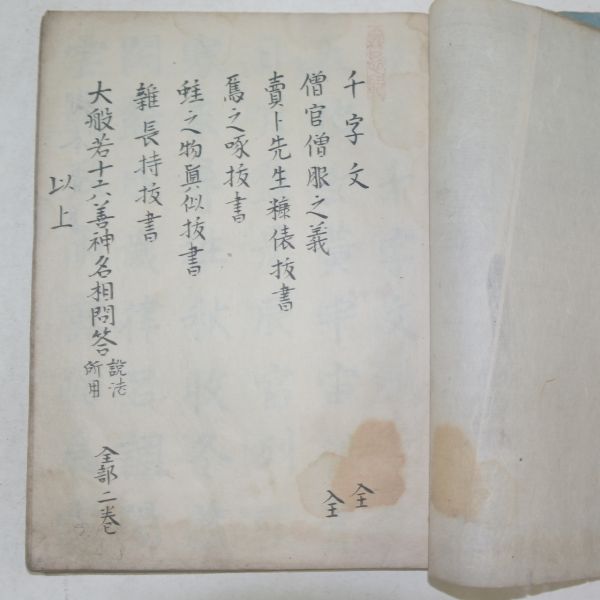 千字文 全
僧官僧服之義 全
賣卜先生糠俵抜書
爲之啄抜書
蛙之物真似抜書
雑長持抜書
大般若十六善神名相問答 說法所用 全部二巻
以上